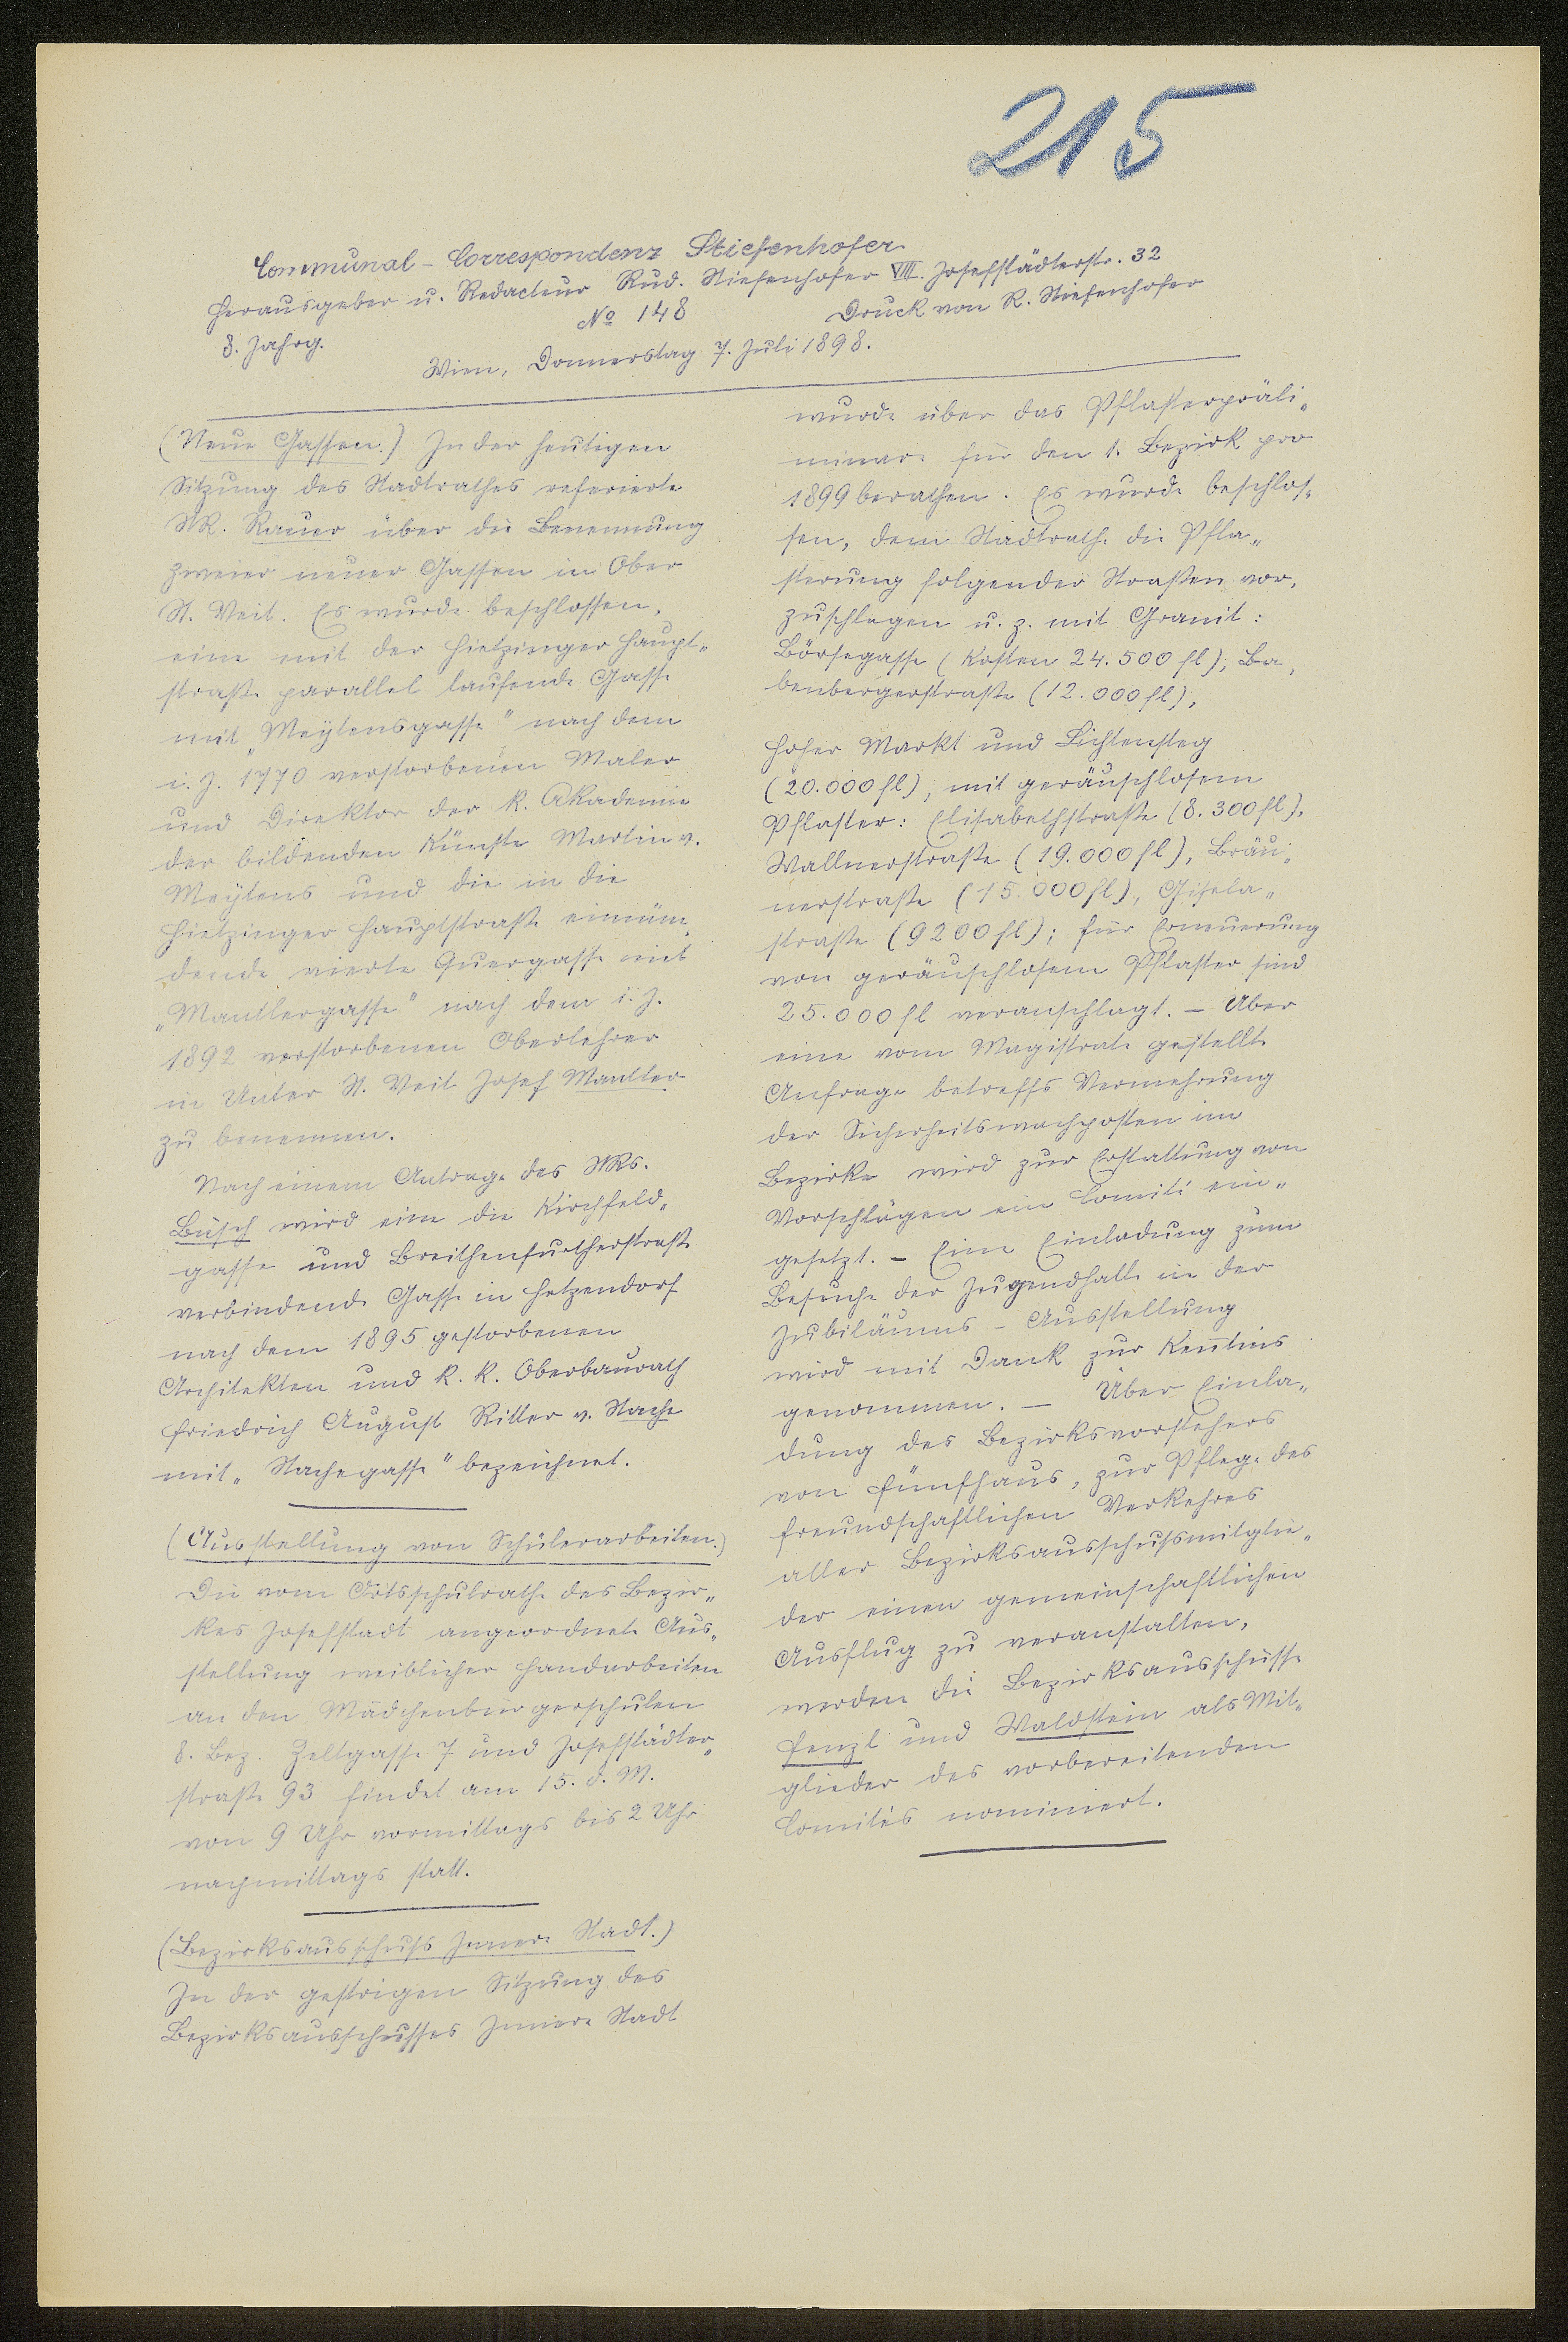 215
Communal-Correspondenz Stiefenhofer
Herausgeber u. Redacteur Rud. Stiefenhofer VIII. Josefstädterstr. 32
8. Jahrg. No 148 Druck von R. Stiefenhofer
Wien, Donnerstag 7. Juli 1898.
(Neue Gassen.) In der heutigen
Sitzung des Stadtrathes referierte
StR. Rauer über die Benennung
zweier neuer Gassen in Ober
St. Veit. Es wurde beschlossen,
eine mit der Hietzinger Haupt„
straße parallel laufende Gasse
mit „Meytensgasse" nach dem
i. J. 1770 verstorbenen Maler
und Direktor der k. Akademie
der bildenden Künste Martin v.
Meytens und die in die
Hietzinger Hauptstraße einmün„
dende vierte Quergasse mit
„Mantlergasse" nach dem i. J.
1892 verstorbenen Oberlehrer
in Unter St. Veit Josef Mantler
zu benennen.
Nach einem Antrage des StRs.
Büsch wird eine die Kirchfeld„
gasse und Breithenfurtherstraße
verbindende Gasse in Hetzendorf
nach dem 1895 gestorbenen
Architekten und k. k. Oberbaurath
Friedrich August Ritter v. Stache
mit „Stachegasse" bezeichnet.
(Ausstellung von Schülerarbeiten.)
Die vom Ortsschulrathe des Bezir„
kes Josefstadt angeordnete Aus„
stellung weiblicher Handarbeiten
an den Mädchenbürgerschulen
8. Bez. Zeltgasse 7 und Josefstädter„
straße 93 findet am 15. d. M.
von 9 Uhr vormittags bis 2 Uhr
nachmittags statt.
(Bezirksausschuß Innere Stadt.)
In der gestrigen Sitzung des
Bezirksausschusses Innere Stadt
wurde über das Pflasterpräli„
minare für den 1. Bezirk pro
1899 berathen. Es wurde beschlos„
sen, dem Stadtrathe die Pfla„
sterung folgender Straßen vor„
zuschlagen u. z. mit Granit:
Börsegasse (Kosten 24.500 fl), Ba„
benbergerstraße (12.000 fl),
Hoher Markt und Lichtensteg
(20.000 fl), mit geräuschlosem
Pflaster: Elisabethstraße (8.300 fl),
Wallnerstraße (19.000 fl), Bräu„
nerstraße (15.000 fl), Gisela„
straße (9200 fl); für Erneuerung
von geräuschlosem Pflaster sind
25.000 fl veranschlagt. – Über
eine vom Magistrate gestellte
Anfrage betreffs Vermehrung
der Sicherheitswachposten im
Bezirke wird zur Erstattung von
Vorschlägen ein Comité ein„
gesetzt. – Eine Einladung zum
Besuche der Jugendhalle in der
Jubiläums-Ausstellung
wird mit Dank zur Kentnis
genommen. – Über Einla„
dung des Bezirksvorstehers
von Fünfhaus, zur Pflege des
freundschaftlichen Verkehres
aller Bezirksausschußmitglie„
der einen gemeinschaftlichen
Ausflug zu veranstalten,
werden die Bezirksausschüsse
Fenzl und Waldstein als Mit„
glieder des vorbereitenden
Comités nominiert.